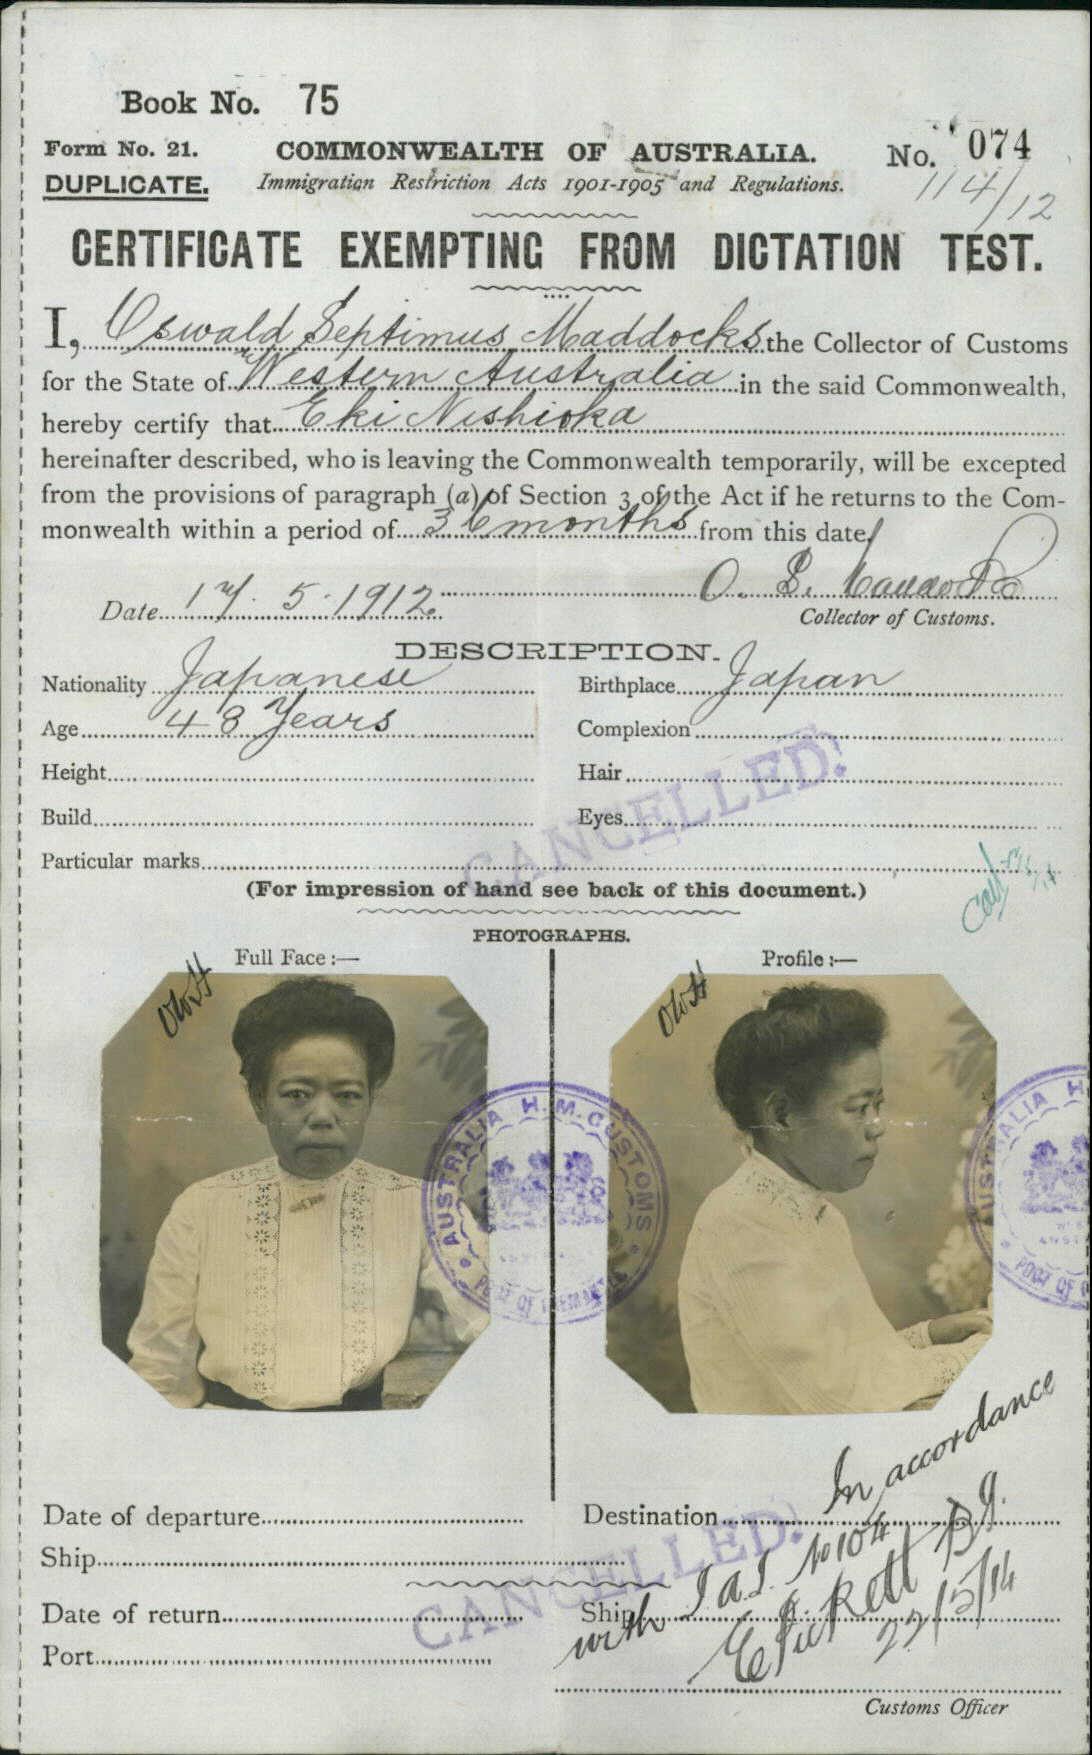 Book No. 75
Form No. 21.
COMMONWEALTH OF AUSTRALIA.
No. 074
DUPLICATE.
Immigration Restriction Acts 1901-1905 and Regulations.
114/12
CERTIFICATE EXEMPTING FROM DICTATION TEST.
I, Oswald Septimus Maddocks the Collector of Customs
for the State of Western Australia in the said Commonwealth,
hereby certify that Eki Nishioka
hereinafter described, who is leaving the Commonwealth temporarily, will be excepted
from the provisions of paragraph (a) of Section 3 of the Act if he returns to the Com-
monwealth within a period of 36 months from this date.
O. S. Maddocks
Date 17. 5. 1912.
Collector of Customs.
DESCRIPTION.
Nationality Japanese
Birthplace Japan
Age 48 Years
Complexion
Height
Hair
Build
Eyes
CANCELLED!
Particular marks
(For impression of hand see back of this document.)
PHOTOGRAPHS.
Full Face :—
Profile :—
AUSTRALIA H.M. CUSTOMS
PORT OF FREMANTLE
AUSTRALIA H
PORT OF
In accordance
Date of departure
Destination
with I a I. No 104
Ship
CANCELLED!
Date of return
Ship
22/5/14
Port
Customs Officer